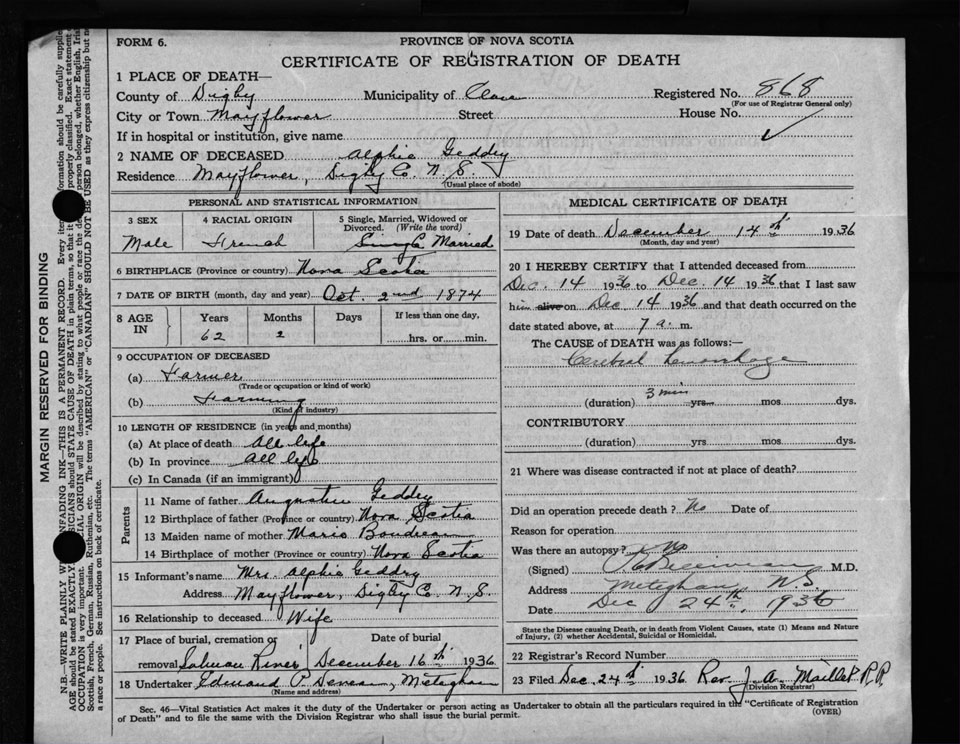 FORM 6.
PROVINCE OF NOVA SCOTIA
CERTIFICATE OF REGISTRATION OF DEATH
1 PLACE OF DEATH—
County of Digby Municipality of Clare Registered No. 868
(For use of Registrar General only)
City or Town Mayflower Street House No.
If in hospital or institution, give name
2 NAME OF DECEASED Alphie Geddry
Residence Mayflower, Digby Co. N.S.
(Usual place of abode)
PERSONAL AND STATISTICAL INFORMATION
3 SEX 4 RACIAL ORIGIN 5 Single, Married, Widowed or Divorced. (Write the word)
Male French Married
6 BIRTHPLACE (Province or country) Nova Scotia
7 DATE OF BIRTH (month, day and year) Oct. 2nd 1874
8 AGE IN Years Months Days If less than one day,
62 2 hrs. or min.
9 OCCUPATION OF DECEASED
(a) Farmer
(Trade or occupation or kind of work)
(b) Farming
(Kind of industry)
10 LENGTH OF RESIDENCE (in years and months)
(a) At place of death All life
(b) In province All life
(c) In Canada (if an immigrant)
Parents
11 Name of father Augustin Geddry
12 Birthplace of father (Province or country) Nova Scotia
13 Maiden name of mother Marie Boudreau
14 Birthplace of mother (Province or country) Nova Scotia
15 Informant's name Mrs. Alphie Geddry
Address Mayflower, Digby Co. N.S.
16 Relationship to deceased Wife
17 Place of burial, cremation or removal Salmon River Date of burial December 16th 1936
18 Undertaker Edmund P. Deveau, Meteghan
(Name and address)
MEDICAL CERTIFICATE OF DEATH
19 Date of death December 14th 1936
(Month, day and year)
20 I HEREBY CERTIFY that I attended deceased from
Dec. 14 1936 to Dec. 14 1936 that I last saw
him alive on Dec. 14 1936 and that death occurred on the
date stated above, at 7 a. m.
The CAUSE OF DEATH was as follows:—
Cerebral hemorrhage
(duration) 3 min yrs. mos. dys.
CONTRIBUTORY
(duration) yrs. mos. dys.
21 Where was disease contracted if not at place of death?
Did an operation precede death? No Date of
Reason for operation
Was there an autopsy? No
(Signed) M.D.
Address Meteghan N.S.
Date Dec 24th, 1936
State the Disease causing Death, or in death from Violent Causes, state (1) Means and Nature
of Injury, (2) whether Accidental, Suicidal or Homicidal.
22 Registrar's Record Number
23 Filed Dec. 24th 1936 Rev. J. A. Maillet P.P.
(Division Registrar)
Sec. 46—Vital Statistics Act makes it the duty of the Undertaker or person acting as Undertaker to obtain all the particulars required in the "Certificate of Registration
of Death" and to file the same with the Division Registrar who shall issue the burial permit.
(OVER)
MARGIN RESERVED FOR BINDING
N.B.—WRITE PLAINLY NFADING INK—THIS IS A PERMANENT RECORD. Every ite formation should be carefully supplie
AGE should be stated EXACTLY SICIANS should STATE CAUSE OF DEATH in plain terms, so that it properly classified. Exact statement
OCCUPATION is very important. IAL ORIGIN will be described by stating to what people or race the de person belonged, whether English, Iris
Scottish, French, German, Russian, Ruthenian, etc. The terms "AMERICAN" or "CANADIAN" SHOULD NOT BE USED as they express citizenship but n
a race or people. See instructions on back of certificate.